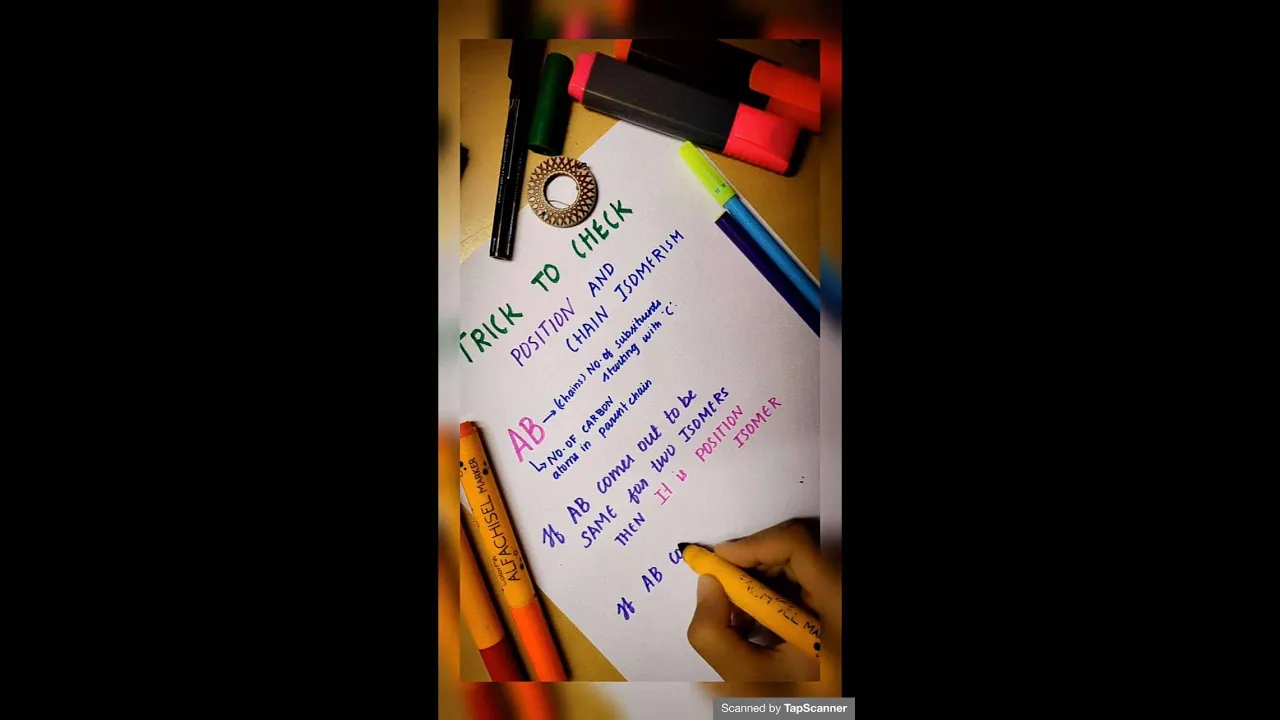 TRICK TO CHECK
POSITION AND
CHAIN ISOMERISM
AB → (chains) No. of subsituends
starting with 'C'.
↳ NO. OF CARBON
atoms in parent chain
If AB comes out to be
SAME for two ISOMERS
THEN It is POSITION
ISOMER
If AB co
Colorin
ALFACHISEL MARKER
Scanned by TapScanner